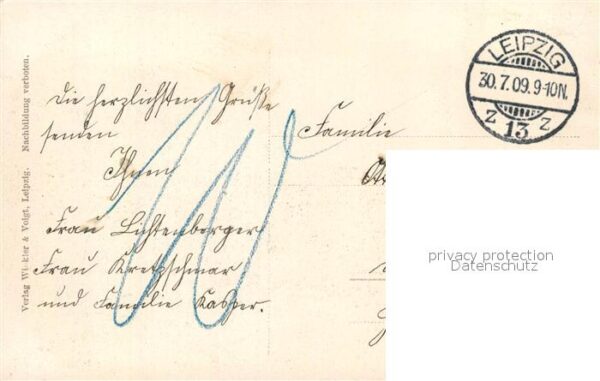 Die herzlichsten Grüße
senden
Ihnen
Frau Lichtenberger
Frau Kretzschmar
und Familie Kasper.
Familie
LEIPZIG
30.7.09.9-10N.
Z 13 Z
privacy protection
Datenschutz
Verlag Winkler & Voigt, Leipzig. Nachbildung verboten.